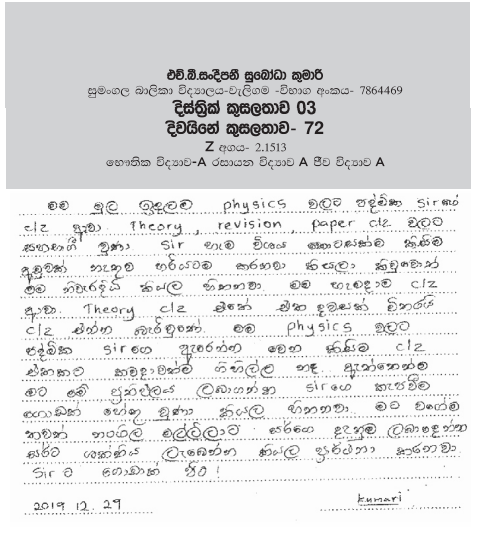 එච්.බී.සංදීපනී සුබෝධා කුමාරි
සුමංගල බාලිකා විද්‍යාලය-වැලිගම -විභාග අංකය- 7864469
දිස්ත්‍රික් කුසලතාව 03
දිවයිනේ කුසලතාව- 72
Z අගය- 2.1513
භෞතික විද්‍යාව-A රසායන විද්‍යාව A ජීව විද්‍යාව A
මම මුල ඉඳලම physics වලට පද්මික Sirගේ
clz ආවා. Theory, revision, paper clz වලට
සහභාගී වුණා Sir හැම විශය කොටසක්ම කිසිම
අඩුවක් නැතුව හරියටම කරනවා කියලා කිවුවොත්
මම නිවැරදියි කියල හිතනවා මම හැමදාම clz
ආවා. Theory clz එකේ එක දවසක් විතරයි
clz එන්න බැරිවුණේ. මම physics වලට
පද්මික sirගෙ ඇරෙන්න වෙන කිසිම clz
එකකට කවදාවත්ම ගිහිල්ල නෑ. ඇත්තෙන්ම
මට මේ ප්‍රතිඵලය ලබාගන්න sirගෙ කැපවීම
ගොඩක් හේතු වුණා කියල හිතනවා. මට වගේම
තවත් නංගිලා මල්ලිලාට සර්ගෙ දැනුම ලබාදෙන්න
සර්ට ශක්තිය ලැබෙන්න කියල ප්‍රාර්ථනා කරනවා.
Sir ට ගොඩාක් පිං!
2019 12. 29
kumari